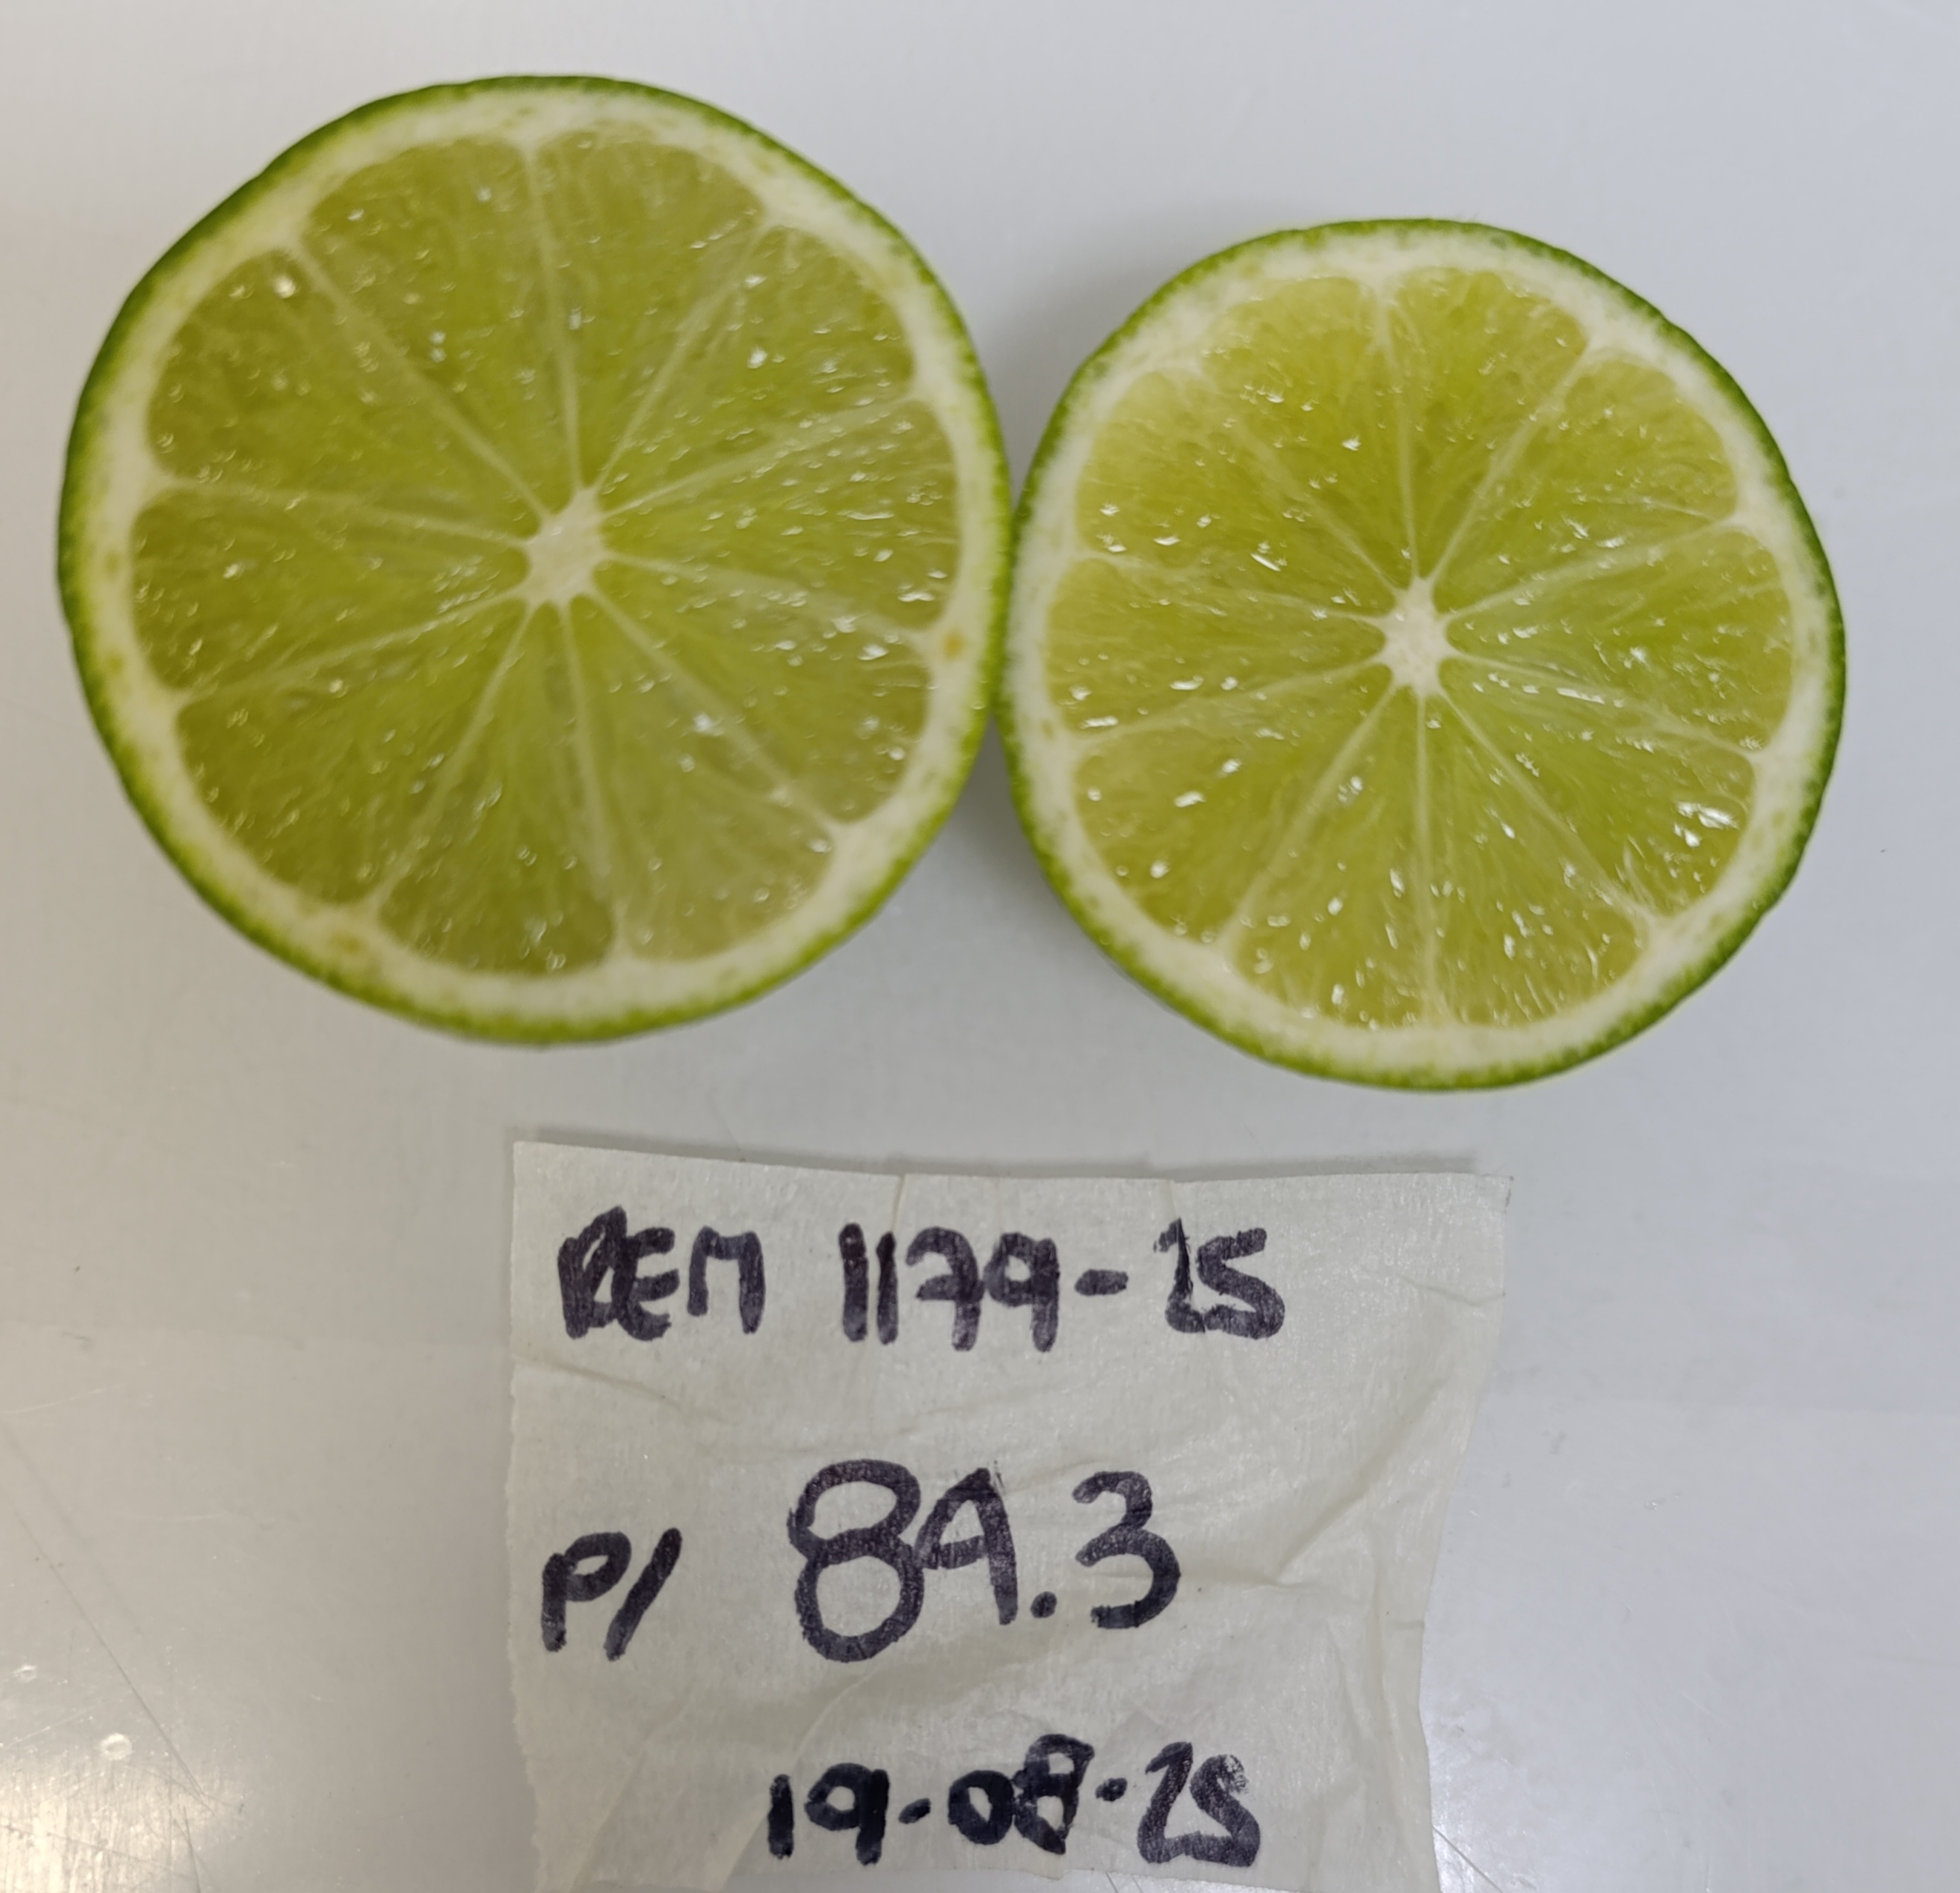 REM 1179-25
P/ 89.3
19-08-25